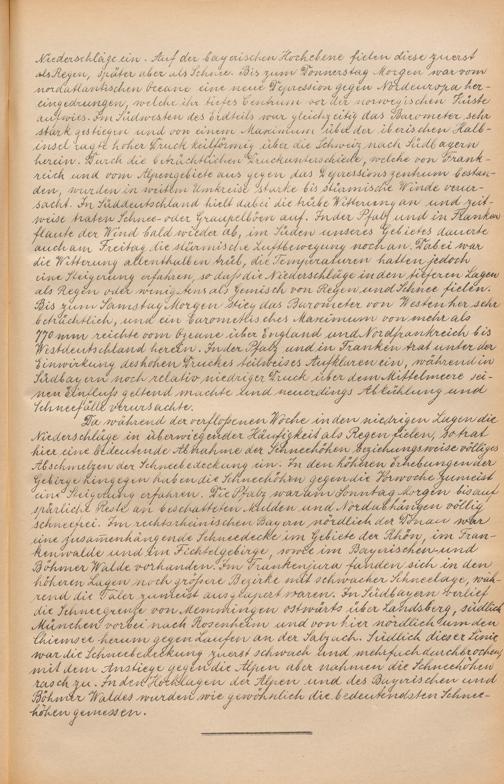 Niederschläge ein. Auf der bayerischen Hochebene fielen diese zuerst
als Regen, später aber als Schnee. Bis zum Donnerstag Morgen war vom
nordatlantischen Oceane eine neue Depression gegen Nordeuropa her-
eingedrungen, welche ihr tiefes Centrum vor der norwegischen Küste
aufwies. Im Südwesten des Erdteils war gleichzeitig das Barometer sehr
stark gestiegen und von einem Maximum über der iberischen Halb-
insel ragte hoher Druck keilförmig über die Schweiz nach Südbayern
herein. Durch die beträchtlichen Druckunterschiede, welche von Frank-
reich und vom Alpengebiete aus gegen das Depressionszentrum bestan-
den, wurden in weitem Umkreise starke bis stürmische Winde verur-
sacht. In Süddeutschland hielt dabei die trübe Witterung an und zeit-
weise traten Schnee- oder Graupelböen auf. In der Pfalz und in Franken
flaute der Wind bald wieder ab, im Süden unseres Gebietes dauerte
auch am Freitag die stürmische Luftbewegung noch an. Dabei war
die Witterung allenthalben trüb, die Temperaturen hatten jedoch
eine Steigerung erfahren, so daß die Niederschläge in den tieferen Lagen
als Regen oder wenigstens als Gemisch von Regen und Schnee fielen.
Bis zum Samstag Morgen stieg das Barometer von Westen her sehr
beträchtlich, und ein barometrisches Maximum von mehr als
770 mm reichte vom Ozeane über England und Nordfrankreich bis
Westdeutschland herein. In der Pfalz und in Franken trat unter der
Einwirkung des hohen Druckes teilweises Aufklaren ein, während in
Südbayern noch relativ niedriger Druck über dem Mittelmeere sei-
nen Einfluß geltend machte und neuerdings Abkühlung und
Schneefälle verursachte.
Da während der verfloßenen Woche in den niedrigen Lagen die
Niederschläge in überwiegender Häufigkeit als Regen fielen, so trat
hier eine bedeutende Abnahme der Schneehöhen beziehungsweise völliges
Abschmelzen der Schneebedeckung ein. In den höheren Erhebungen der
Gebirge hingegen haben die Schneehöhen gegen die Vorwoche zumeist
eine Steigerung erfahren. Die Pfalz war am Sonntag Morgen bis auf
spärliche Reste an beschatteten Mulden und Nordabhängen völlig
schneefrei. Im rechtsrheinischen Bayern nördlich der Donau war
eine zusammenhängende Schneedecke im Gebiete der Rhön, im Fran-
kenwalde und im Fichtelgebirge, sowie im Bayerischen und
Böhmer Walde vorhanden. Im Frankenjura fanden sich in den
höheren Lagen noch größere Bezirke mit schwacher Schneelage, wäh-
rend die Täler zumeist ausgeapert waren. In Südbayern verlief
die Schneegrenze von Memmingen ostwärts über Landsberg, südlich
München vorbei nach Rosenheim und von hier nördlich um den
Chiemsee herum gegen Laufen an der Salzach. Südlich dieser Linie
war die Schneebedeckung zuerst schwach und mehrfach durchbrochen,
mit dem Anstiege gegen die Alpen aber nahmen die Schneehöhen
rasch zu. In den Hochlagen der Alpen und des Bayerischen und
Böhmer Waldes wurden wie gewöhnlich die bedeutendsten Schnee-
höhen gemessen.